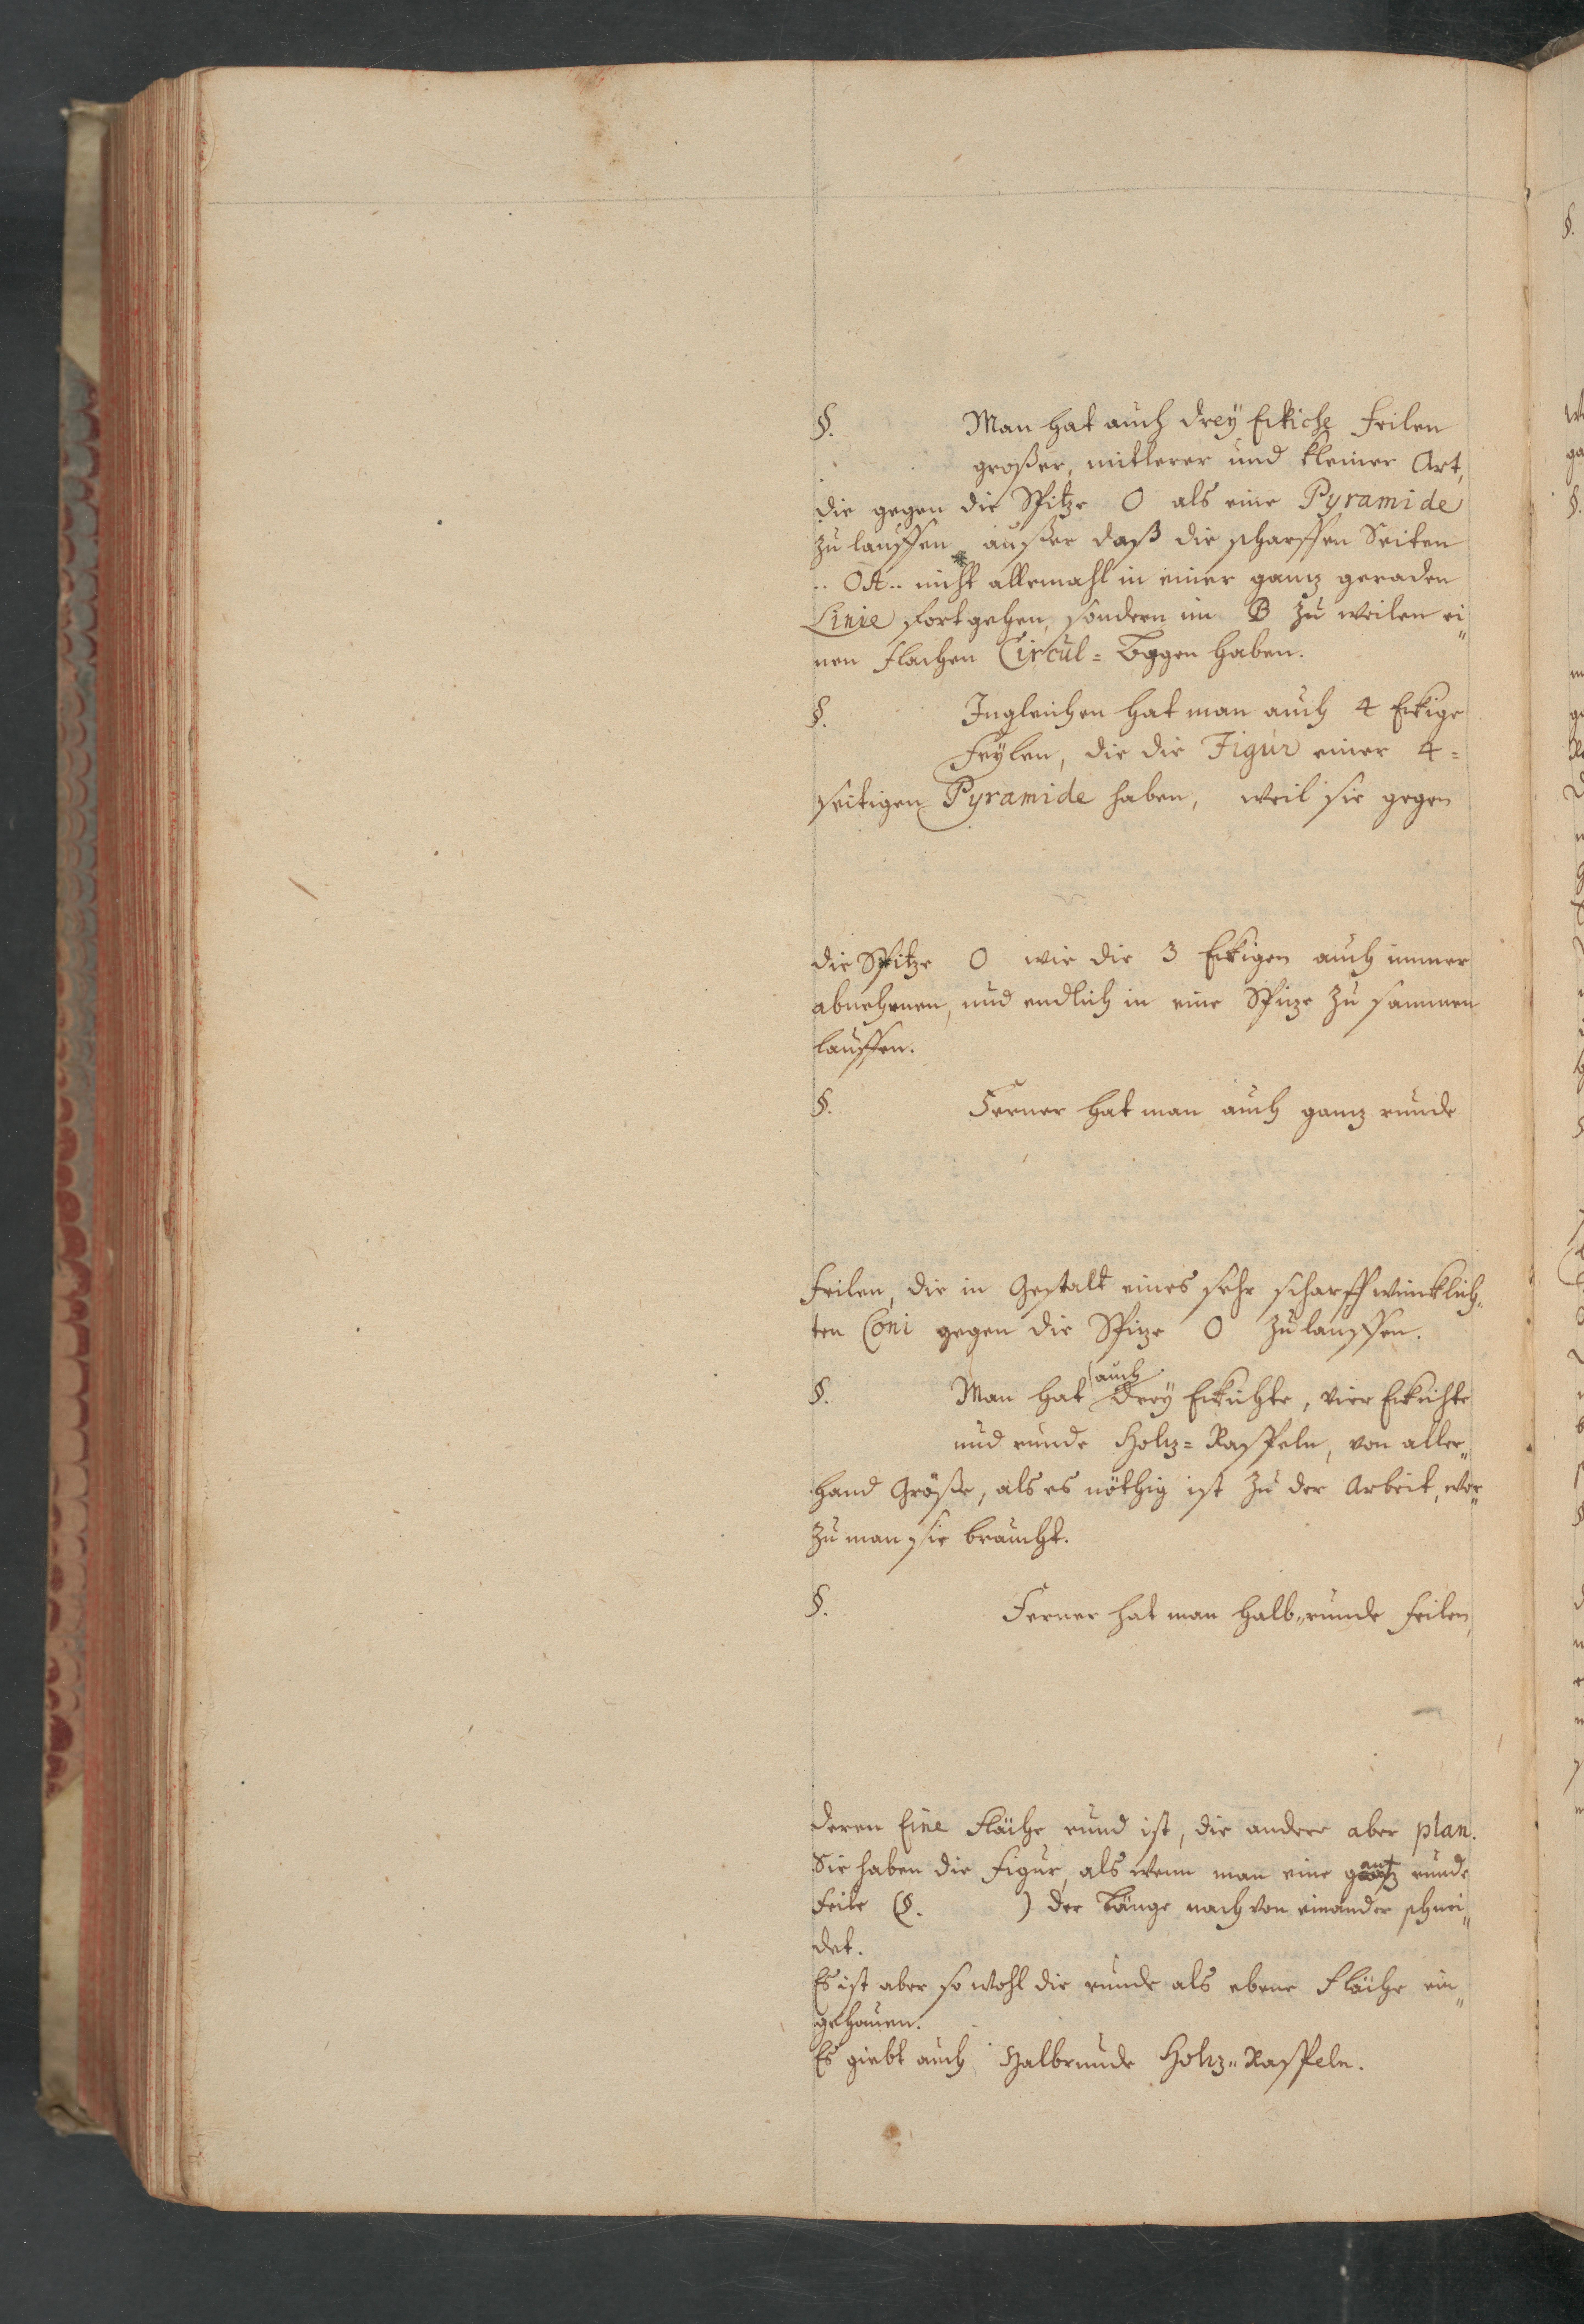 §. Man hat auch drey Eckiche Feilen
großer, mitlerer und kleiner Art,
die gegen die Spitze O als eine Pyramide
zu lauffen ausser daß die scharffen Seiten
.. OA .. nicht allemahl in einer ganz geraden
Linie fortgehen, sondern im B zu weilen ei„
nen flachen Circul= Boggen haben.
§. Ingleichen hat man auch 4 Eckige
Feylen, die die Figur einer 4=
seitigen Pyramide haben, weil sie gegen
die Spitze O wie die 3 Eckigen auch immer
abnehmen, und endlich in eine Spize zu sammen
lauffen.
§. Ferner hat man auch ganz runde
Feilen, die in Gestalt eines sehr scharff wincklich„
ten Coni gegen die Spize O zu lauffen.
§. Man hat auch drey Eckichte, vier Eckichte
und runde Holz= Raspeln, von aller„
hand Grösse, als es nöthig ist zu der Arbeit, wor„
zu man sie braucht.
§. Ferner hat man halb„runde Feilen,
deren Eine Fläche rund ist, die andere aber plan.
Sie haben die Figur, als wenn man eine gantz runde
Feile (§. ) der Länge nach von einander schnei„
det.
Es ist aber so wohl die runde als ebene Fläche ein„
gehauen.
Es giebt auch Halbrunde Holz„ Raspeln.